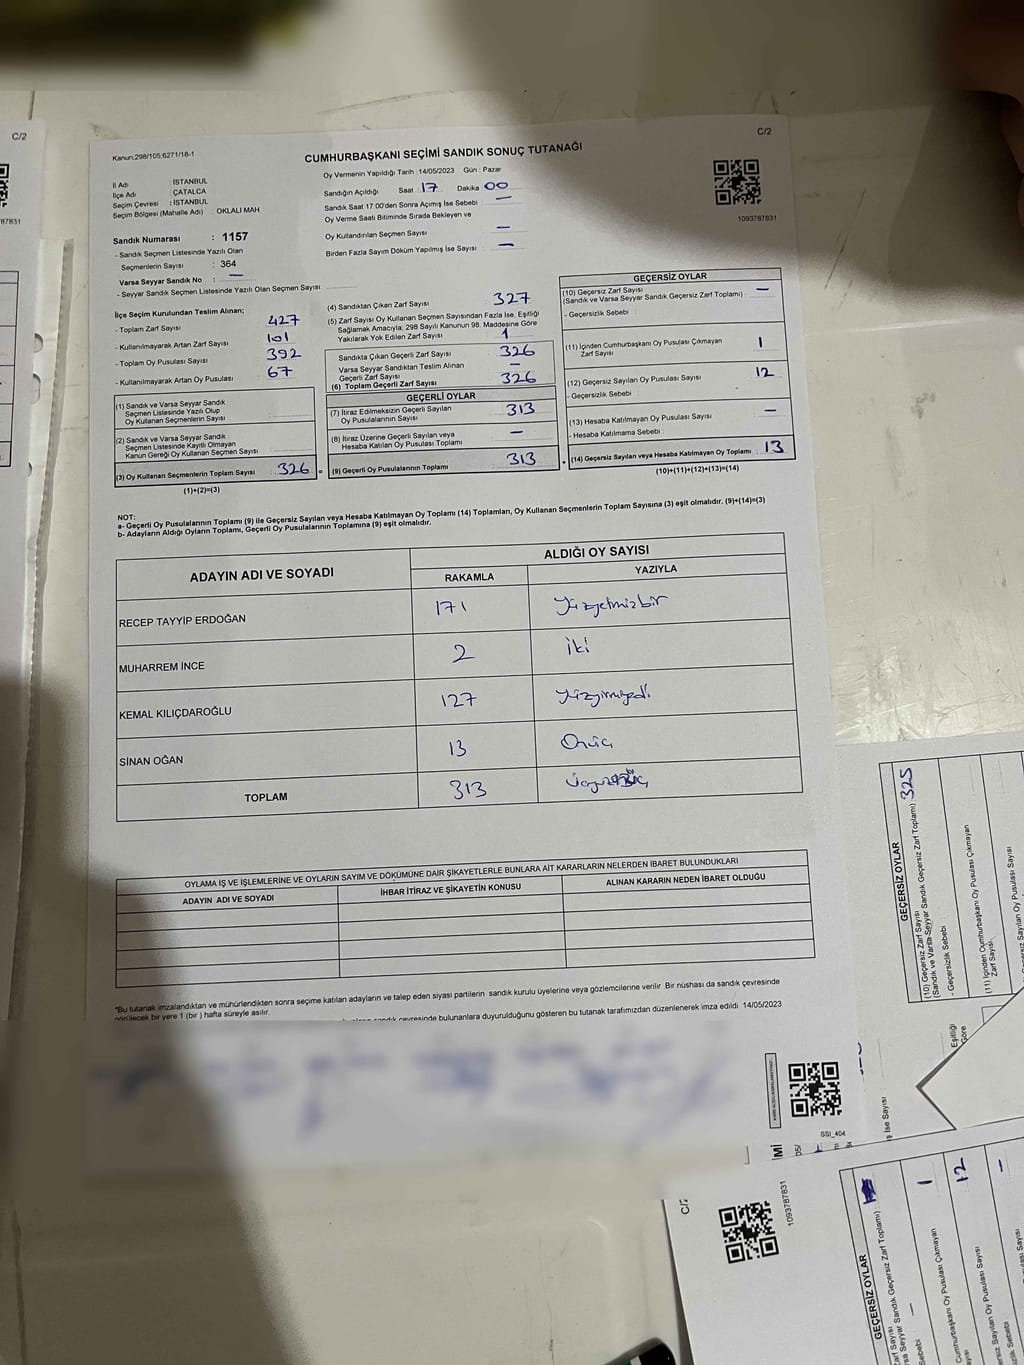 C/2
87831
Kanun.298/105,6271/18-1
C/2
CUMHURBAŞKANI SEÇİMİ SANDIK SONUÇ TUTANAĞI
İl Adı : İSTANBUL
İlçe Adı : ÇATALCA
Seçim Çevresi : İSTANBUL
Seçim Bölgesi (Mahalle Adı) : OKLALI MAH
Oy Vermenin Yapıldığı Tarih : 14/05/2023 Gün : Pazar
Sandığın Açıldığı Saat : 17 Dakika 00
Sandık Saat 17.00'den Sonra Açımış İse Sebebi : —
Oy Verme Saati Bitiminde Sırada Bekleyen ve
Oy Kullandırılan Seçmen Sayısı —
Birden Fazla Sayım Döküm Yapılmış İse Sayısı : —
1093787831
Sandık Numarası : 1157
- Sandık Seçmen Listesinde Yazılı Olan
Seçmenlerin Sayısı : 364
Varsa Seyyar Sandık No : —
- Seyyar Sandık Seçmen Listesinde Yazılı Olan Seçmen Sayısı
İlçe Seçim Kurulundan Teslim Alınan;
- Toplam Zarf Sayısı 427
- Kullanılmayarak Artan Zarf Sayısı 101
- Toplam Oy Pusulası Sayısı 392
- Kullanılmayarak Artan Oy Pusulası 67
(1) Sandık ve Varsa Seyyar Sandık
Seçmen Listesinde Yazılı Olup
Oy Kullanan Seçmenlerin Sayısı
(2) Sandık ve Varsa Seyyar Sandık
Seçmen Listesinde Kayıtlı Olmayan
Kanun Gereği Oy Kullanan Seçmen Sayısı :
(3) Oy Kullanan Seçmenlerin Toplam Sayısı : 326 =
(1)+(2)=(3)
(4) Sandıktan Çıkan Zarf Sayısı 327
(5) Zarf Sayısı Oy Kullanan Seçmen Sayısından Fazla İse, Eşitliği
Sağlamak Amacıyla; 298 Sayılı Kanunun 98. Maddesine Göre
Yakılarak Yok Edilen Zarf Sayısı 1
Sandıkta Çıkan Geçerli Zarf Sayısı 326
Varsa Seyyar Sandıktan Teslim Alınan
Geçerli Zarf Sayısı —
(6) Toplam Geçerli Zarf Sayısı 326
GEÇERLİ OYLAR
(7) İtiraz Edilmeksizin Geçerli Sayılan
Oy Pusulalarının Sayısı 313
(8) İtiraz Üzerine Geçerli Sayılan veya
Hesaba Katılan Oy Pusulası Toplamı —
(9) Geçerli Oy Pusulalarının Toplamı 313 +
GEÇERSİZ OYLAR
(10) Geçersiz Zarf Sayısı
(Sandık ve Varsa Seyyar Sandık Geçersiz Zarf Toplamı) : —
- Geçersizlik Sebebi :
(11) İçinden Cumhurbaşkanı Oy Pusulası Çıkmayan
Zarf Sayısı 1
(12) Geçersiz Sayılan Oy Pusulası Sayısı 12
- Geçersizlik Sebebi :
(13) Hesaba Katılmayan Oy Pusulası Sayısı —
- Hesaba Katılmama Sebebi :
(14) Geçersiz Sayılan veya Hesaba Katılmayan Oy Toplamı : 13
(10)+(11)+(12)+(13)=(14)
NOT:
a- Geçerli Oy Pusulalarının Toplamı (9) ile Geçersiz Sayılan veya Hesaba Katılmayan Oy Toplamı (14) Toplamları, Oy Kullanan Seçmenlerin Toplam Sayısına (3) eşit olmalıdır. (9)+(14)=(3)
b- Adayların Aldığı Oyların Toplamı, Geçerli Oy Pusulalarının Toplamına (9) eşit olmalıdır.
ADAYIN ADI VE SOYADI
ALDIĞI OY SAYISI
RAKAMLA YAZIYLA
RECEP TAYYİP ERDOĞAN 171 Yüzyetmişbir
MUHARREM İNCE 2 iki
KEMAL KILIÇDAROĞLU 127 yüzyirmiyedi
SİNAN OĞAN 13 Onüç
TOPLAM 313
OYLAMA İŞ VE İŞLEMLERİNE VE OYLARIN SAYIM VE DÖKÜMÜNE DAİR ŞİKAYETLERLE BUNLARA AİT KARARLARIN NELERDEN İBARET BULUNDUKLARI
ADAYIN ADI VE SOYADI İHBAR İTİRAZ VE ŞİKAYETİN KONUSU ALINAN KARARIN NEDEN İBARET OLDUĞU
*Bu tutanak imzalandıktan ve mühürlendikten sonra seçime katılan adayların ve talep eden siyasi partilerin sandık kurulu üyelerine veya gözlemcilerine verilir. Bir nüshası da sandık çevresinde
görülecek bir yere 1 (bir) hafta süreyle asılır.
sandık çevresinde bulunanlara duyurulduğunu gösteren bu tutanak tarafımızdan düzenlenerek imza edildi. 14/05/2023
GEÇERSİZ OYLAR
(10) Geçersiz Zarf Sayısı
(Sandık ve Varsa Seyyar Sandık Geçersiz Zarf Toplamı) : 325
- Geçersizlik Sebebi :
(11) İçinden Cumhurbaşkanı Oy Pusulası Çıkmayan
Zarf Sayısı
Sayılan Oy Pusulası Sayısı
Eşitliği
Göre
SSI_404
İse Sayısı :
C/2
1093787831
GEÇERSİZ OYLAR
Zarf Sayısı
Seyyar Sandık Geçersiz Zarf Toplamı) :
Sebebi : —
Cumhurbaşkanı Oy Pusulası Çıkmayan 1
Sayılan Oy Pusulası Sayısı 12
—